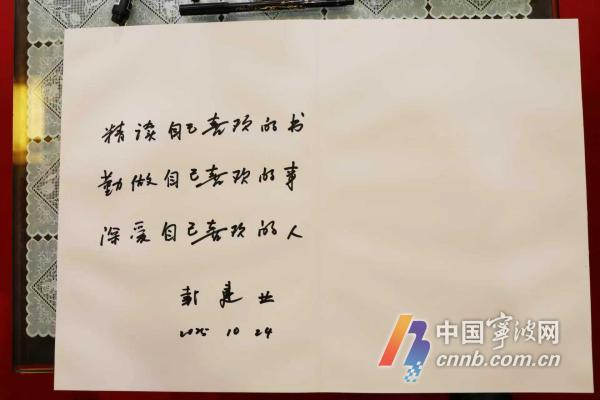 精读自己喜欢的书
勤做自己喜欢的事
深爱自己喜欢的人
戴建业
2025 10 24
中国宁波网
cnnb.com.cn